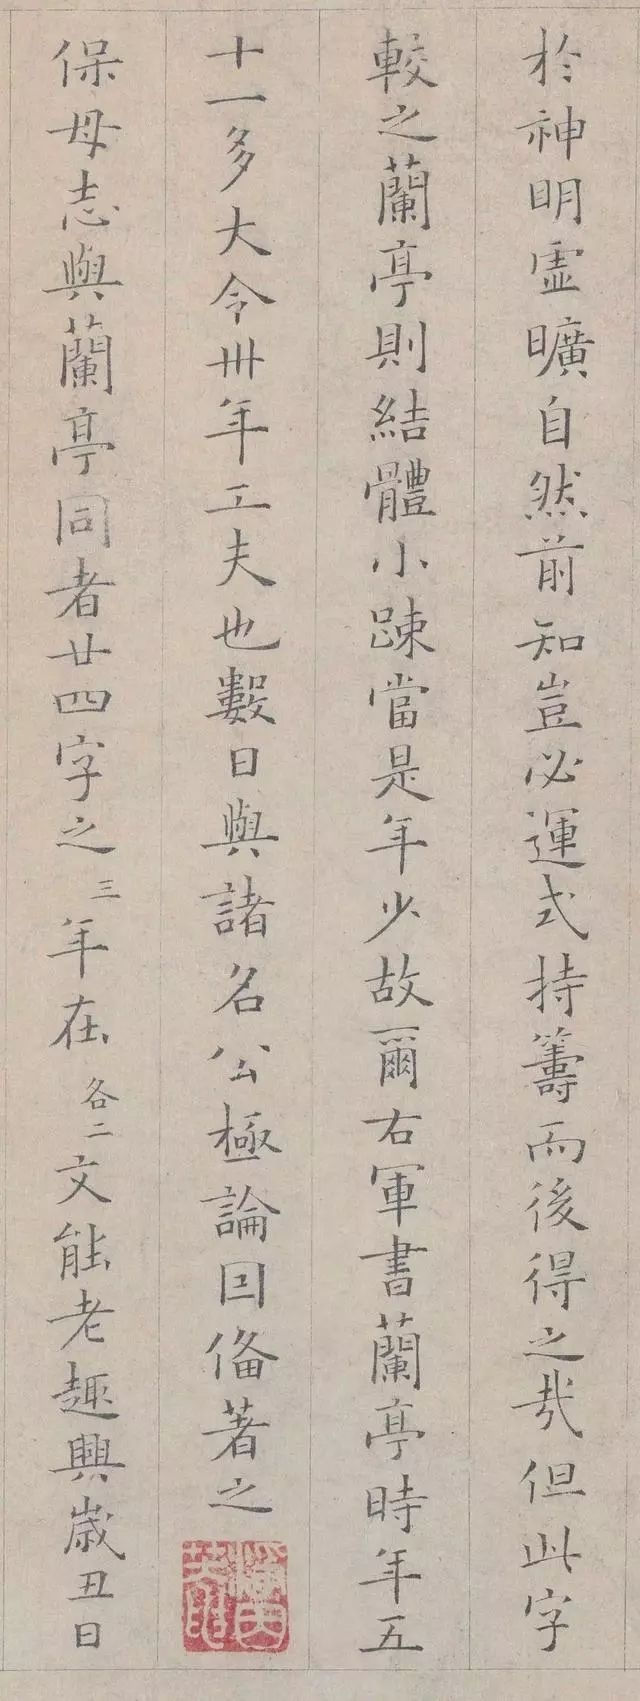 於神明虛曠自然前知豈必運式持籌而後得之哉但此字
較之蘭亭則結體小疎當是年少故爾右軍書蘭亭時年五
十一多大令卅年工夫也數日與諸名公極論因俻著之
保母志與蘭亭同者廿四字之三年在各二文能老趣興歲丑日